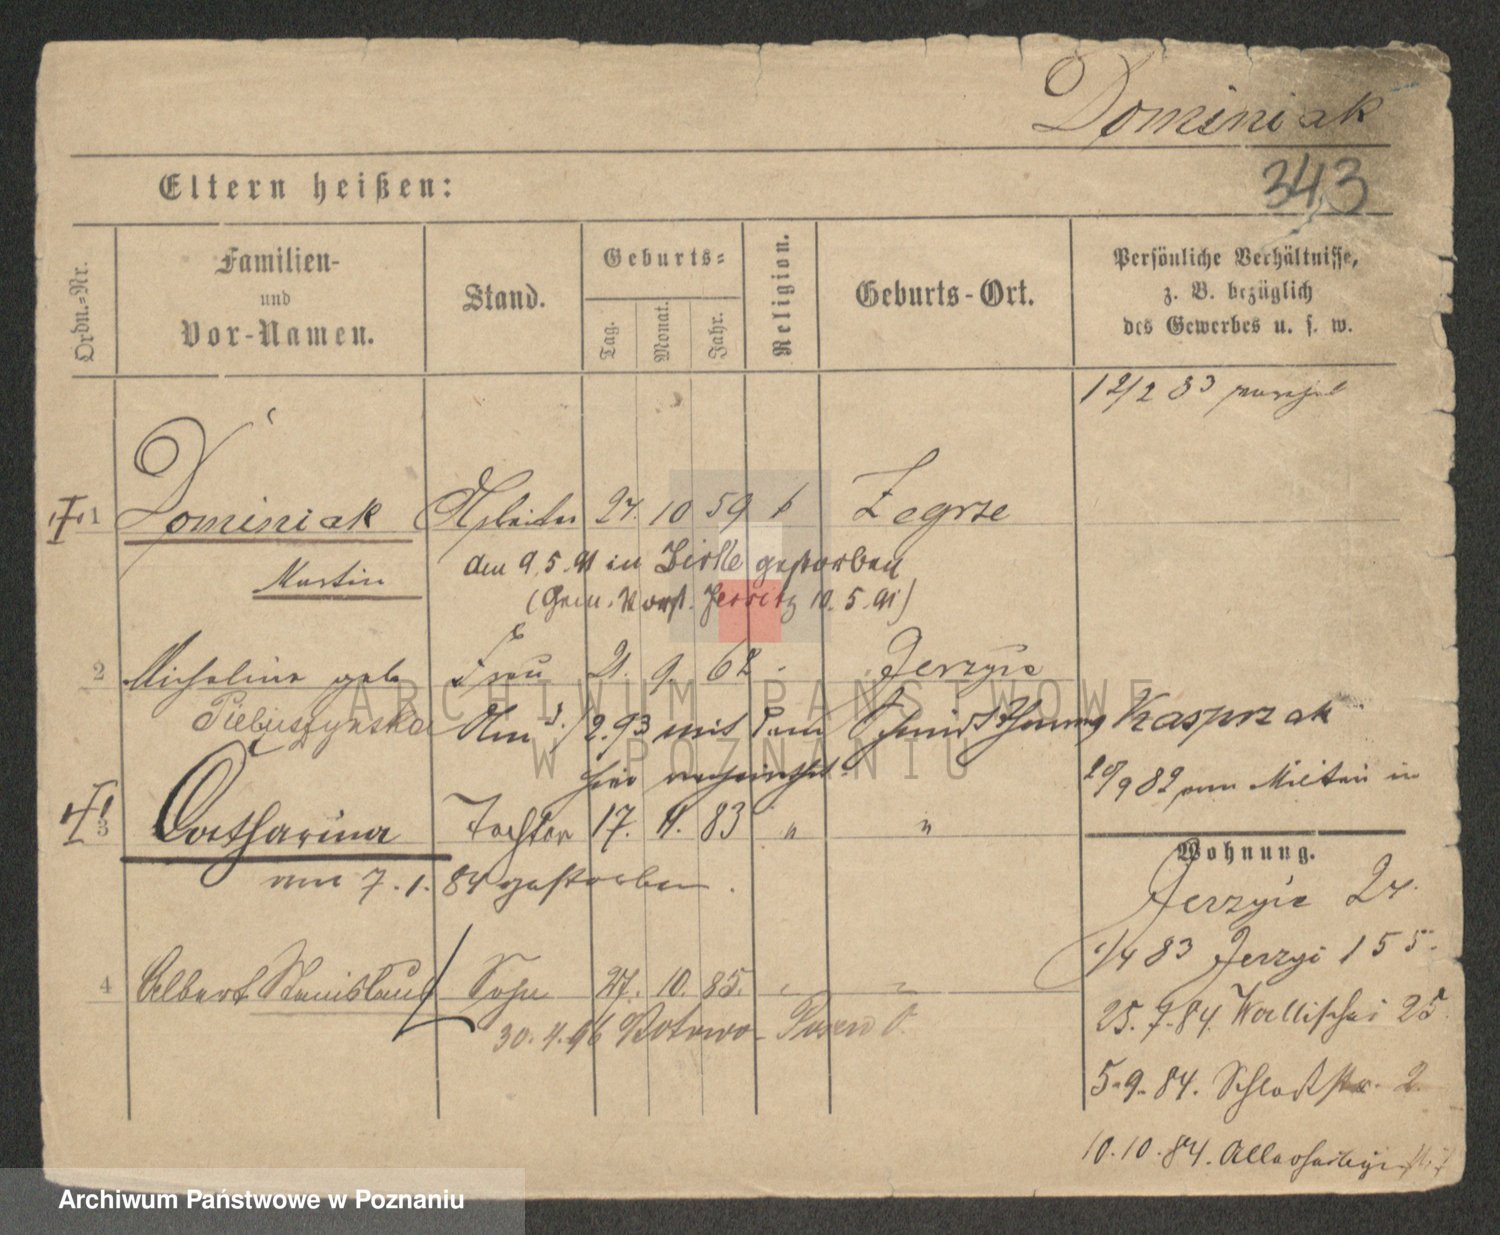 Dominiak
343
Eltern heißen:
Ordn.=Nr.
Familien-
und
Vor-Namen.
Stand.
Geburts=
Tag.
Monat.
Jahr.
Religion.
Geburts-Ort.
Persönliche Verhältnisse,
z. B. bezüglich
des Gewerbes u. s. w.
12/2 83
1 Dominiak Arbeiter 27. 10 59 k Zegrze
Martin
den 9.5.91 in Zirke gestorben
(Gem. Vorst. Jersitz 10.5.91)
2 Micheline geb Frau 21. 9. 62 Jerzyce
Pieluszynska
Am 3./2.93 mit dem Kasprzak
hier verheirathet.
9 82 vom Militair in
3 Catharina Tochter 17. 11. 83 " "
am 7.1.84 gestorben.
Wohnung.
Jerzyce 27.
1/4 83 Jerzyc 155.
4 Albert Stanislaus Sohn 27. 10. 85.
30.4.96 Kotowo - Posen O.
25.7.84 Wallischei 25.
5.9.84. Schloßstr. 2
10.10.84. Allerheiligen
ARCHIWUM PAŃSTWOWE
W POZNANIU
Archiwum Państwowe w Poznaniu